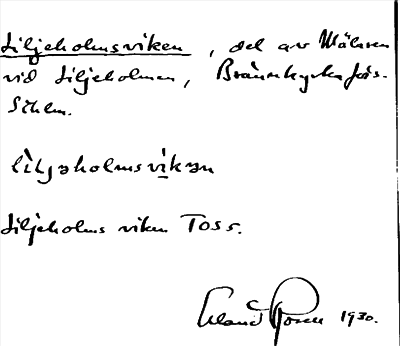 Liljeholmsviken, del av Mälaren
vid Liljeholmen, Brännkyrka förs.
Sthlm.
lìljəholmsvìkən
Liljeholms viken Toss.
Erland Rosell 1930.